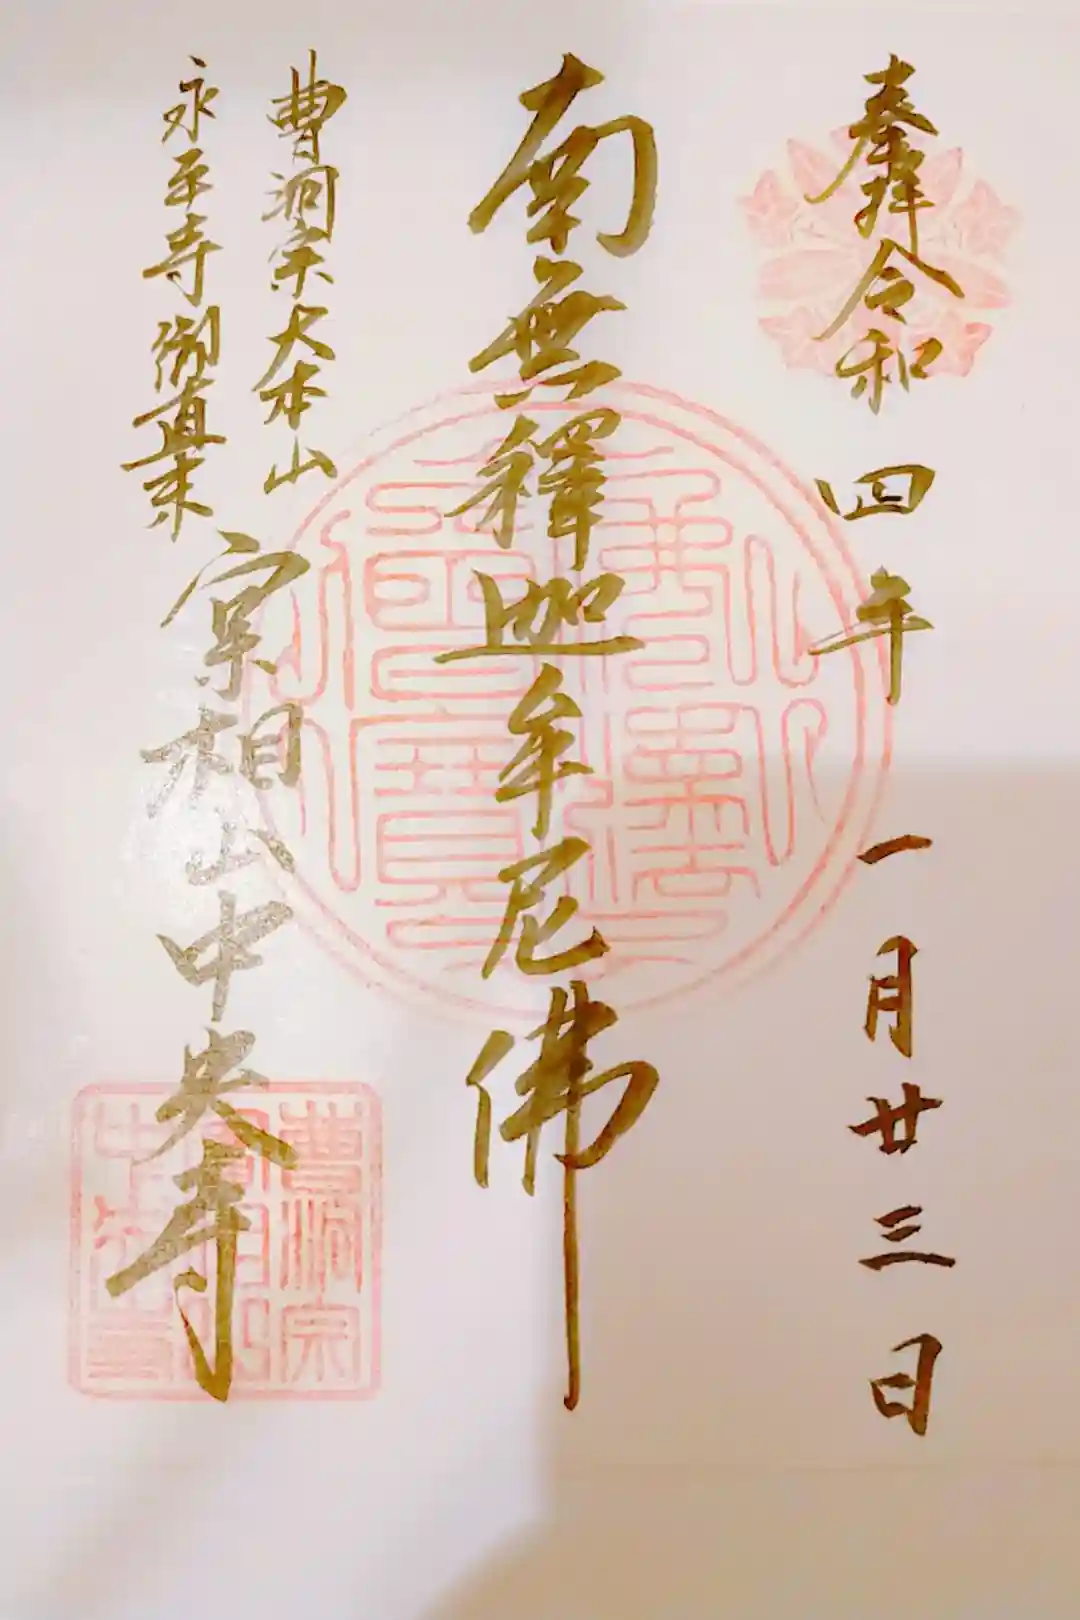 奉拝令和四年一月廿三日
南無釋迦牟尼佛
曹洞宗大本山
永平寺御直末
宗相山中央寺
曹洞宗
中央寺